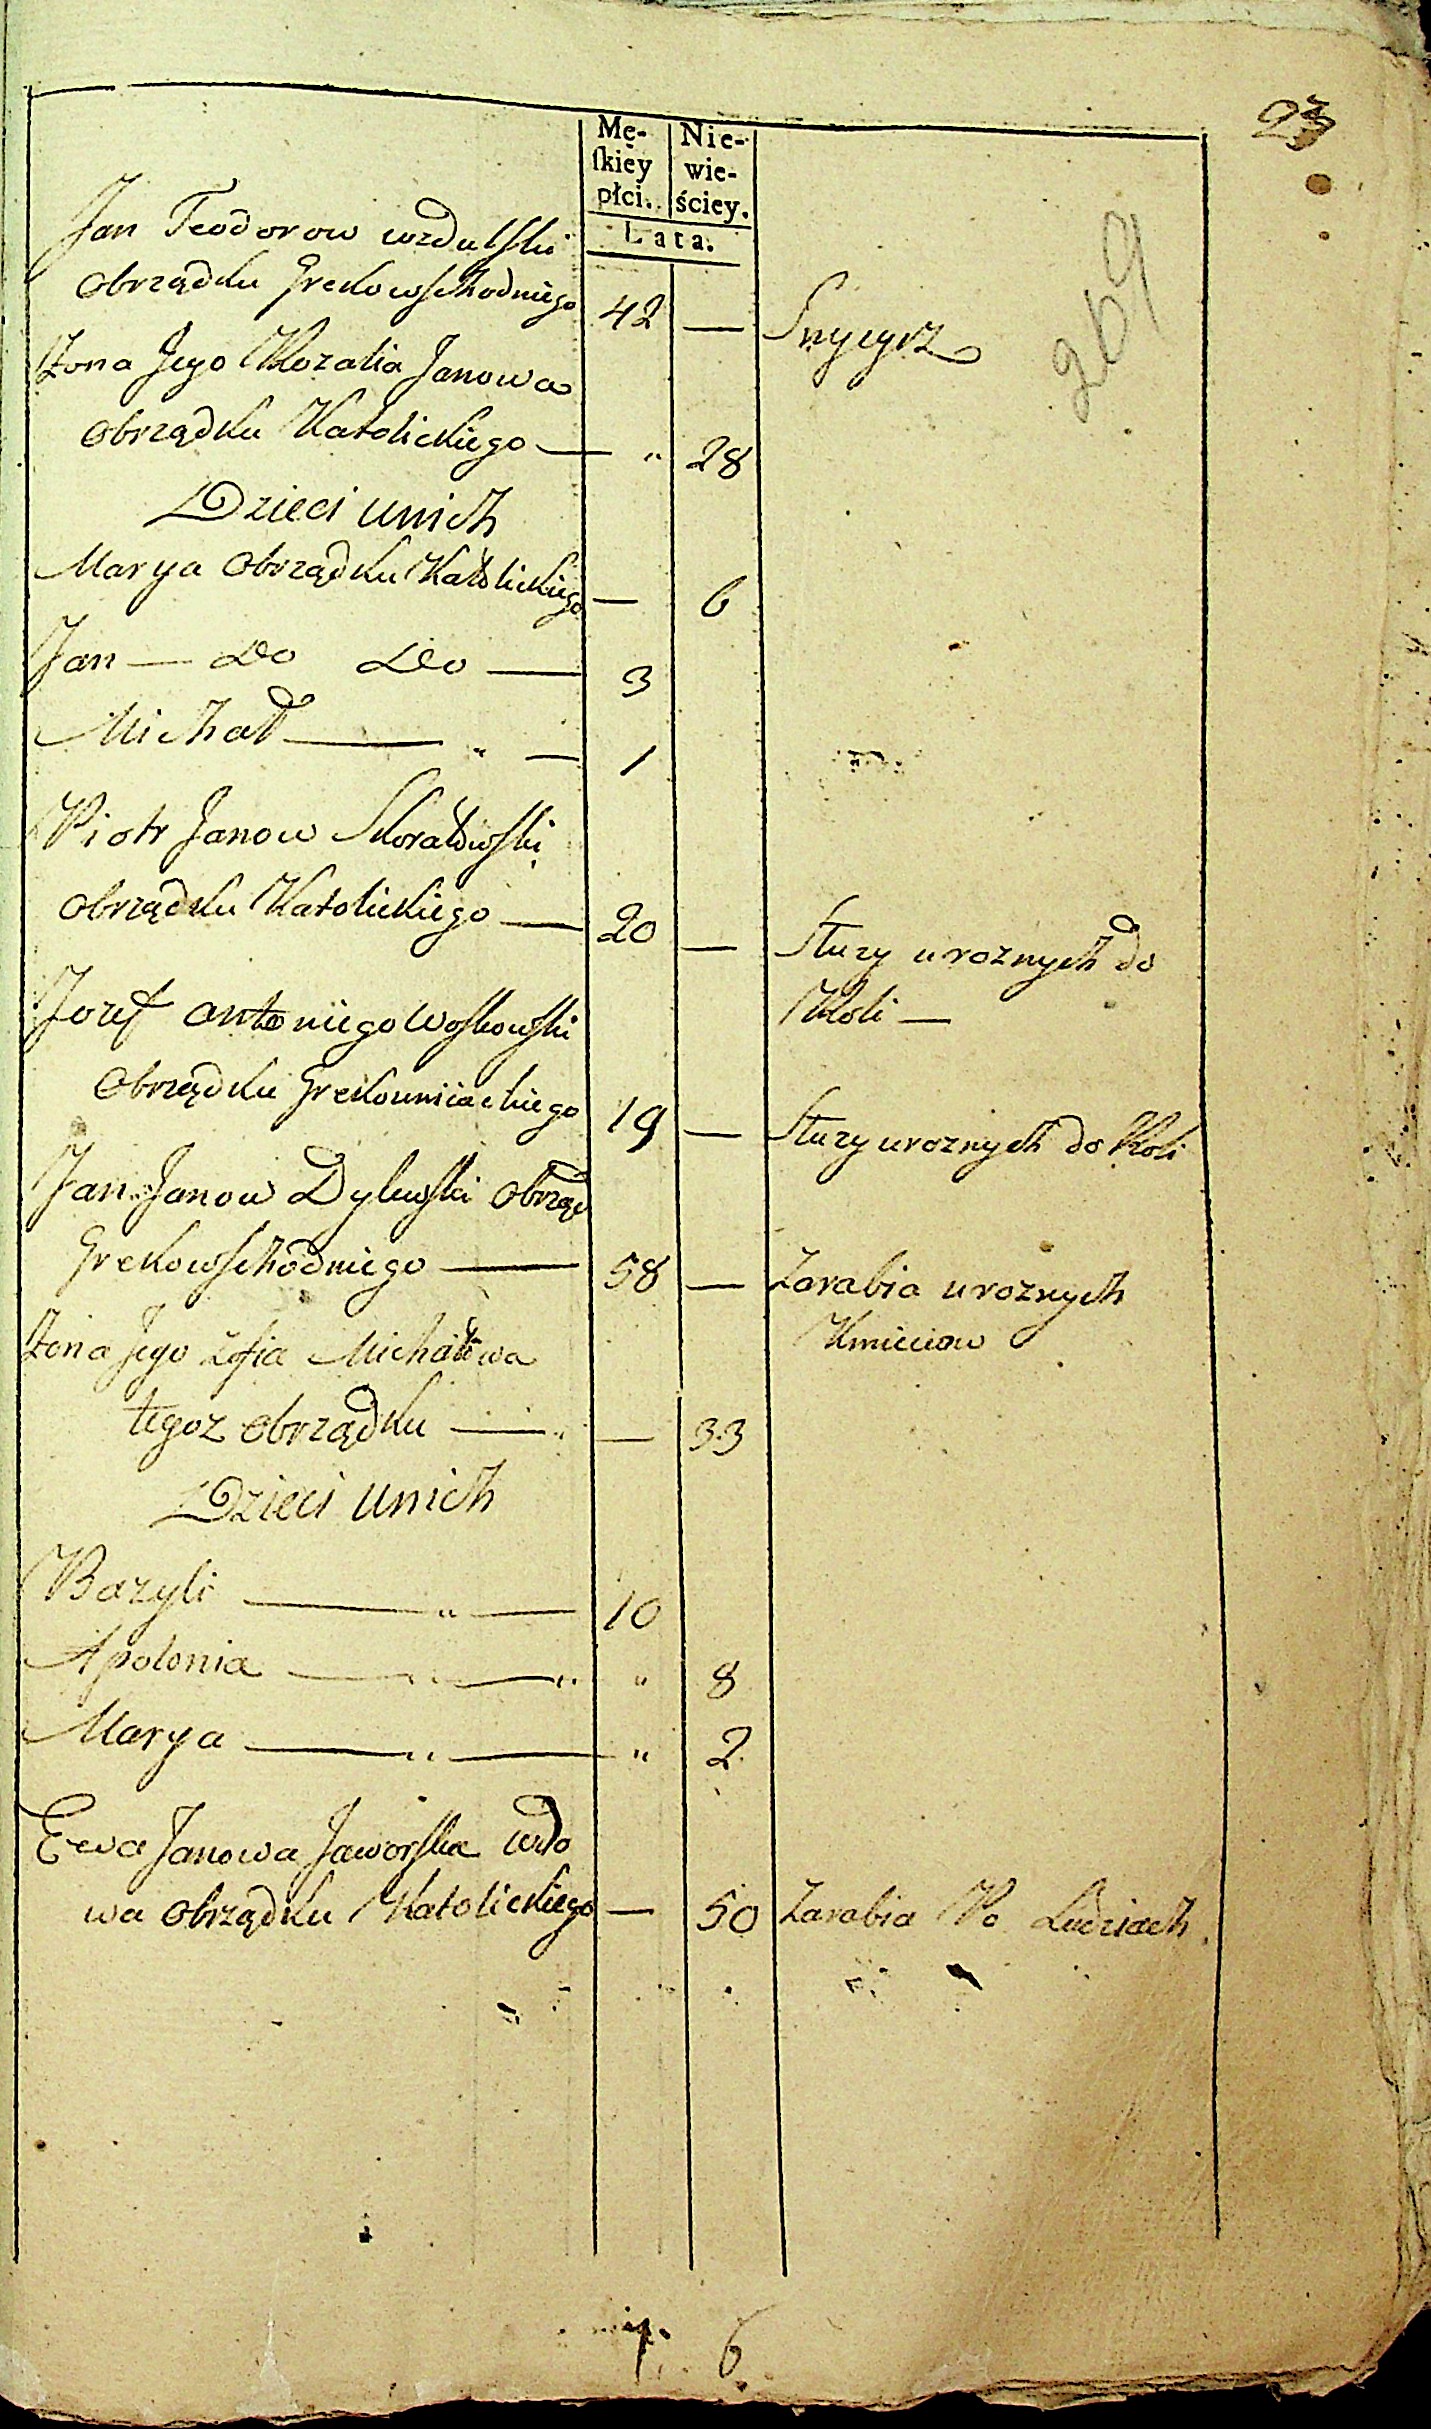 23
269
Mę-
skiey
płci.
Nie-
wie-
ściey.
Lata.
Jan Teodorow wzdulski
obrządku Grekowschodniego 42 — Snycyrz
Żona Jego Rozalia Janowa
obrządku Katolickiego — " 28
Dzieci unich
Marya obrządku Katolickiego — 6
Jan — Do Do — 3
Michał — " — 1
Piotr Janow Skorałowski
obrządku Katolickiego — 20 — Słuzy uroznych do
Roli —
Jozef antoniego Woskowski
Obrządku Grekouniackiego 19 — Słuzy uroznych do Roli
Jan Janow Dylewski obrząd
Grekowschodniego — 58 — Zarabia uroznych
Kmieciow
Żona Jego Zofia Michałowa
tegoz obrządku — " — 33
Dzieci unich
Bazyli — " — 10
Apolonia — " — " " 8
Marya — " — " 2
Ewa Janowa Jaworska wdo
wa obrządku Katolickiego — 50 Zarabia Po Ludziach
7. 6